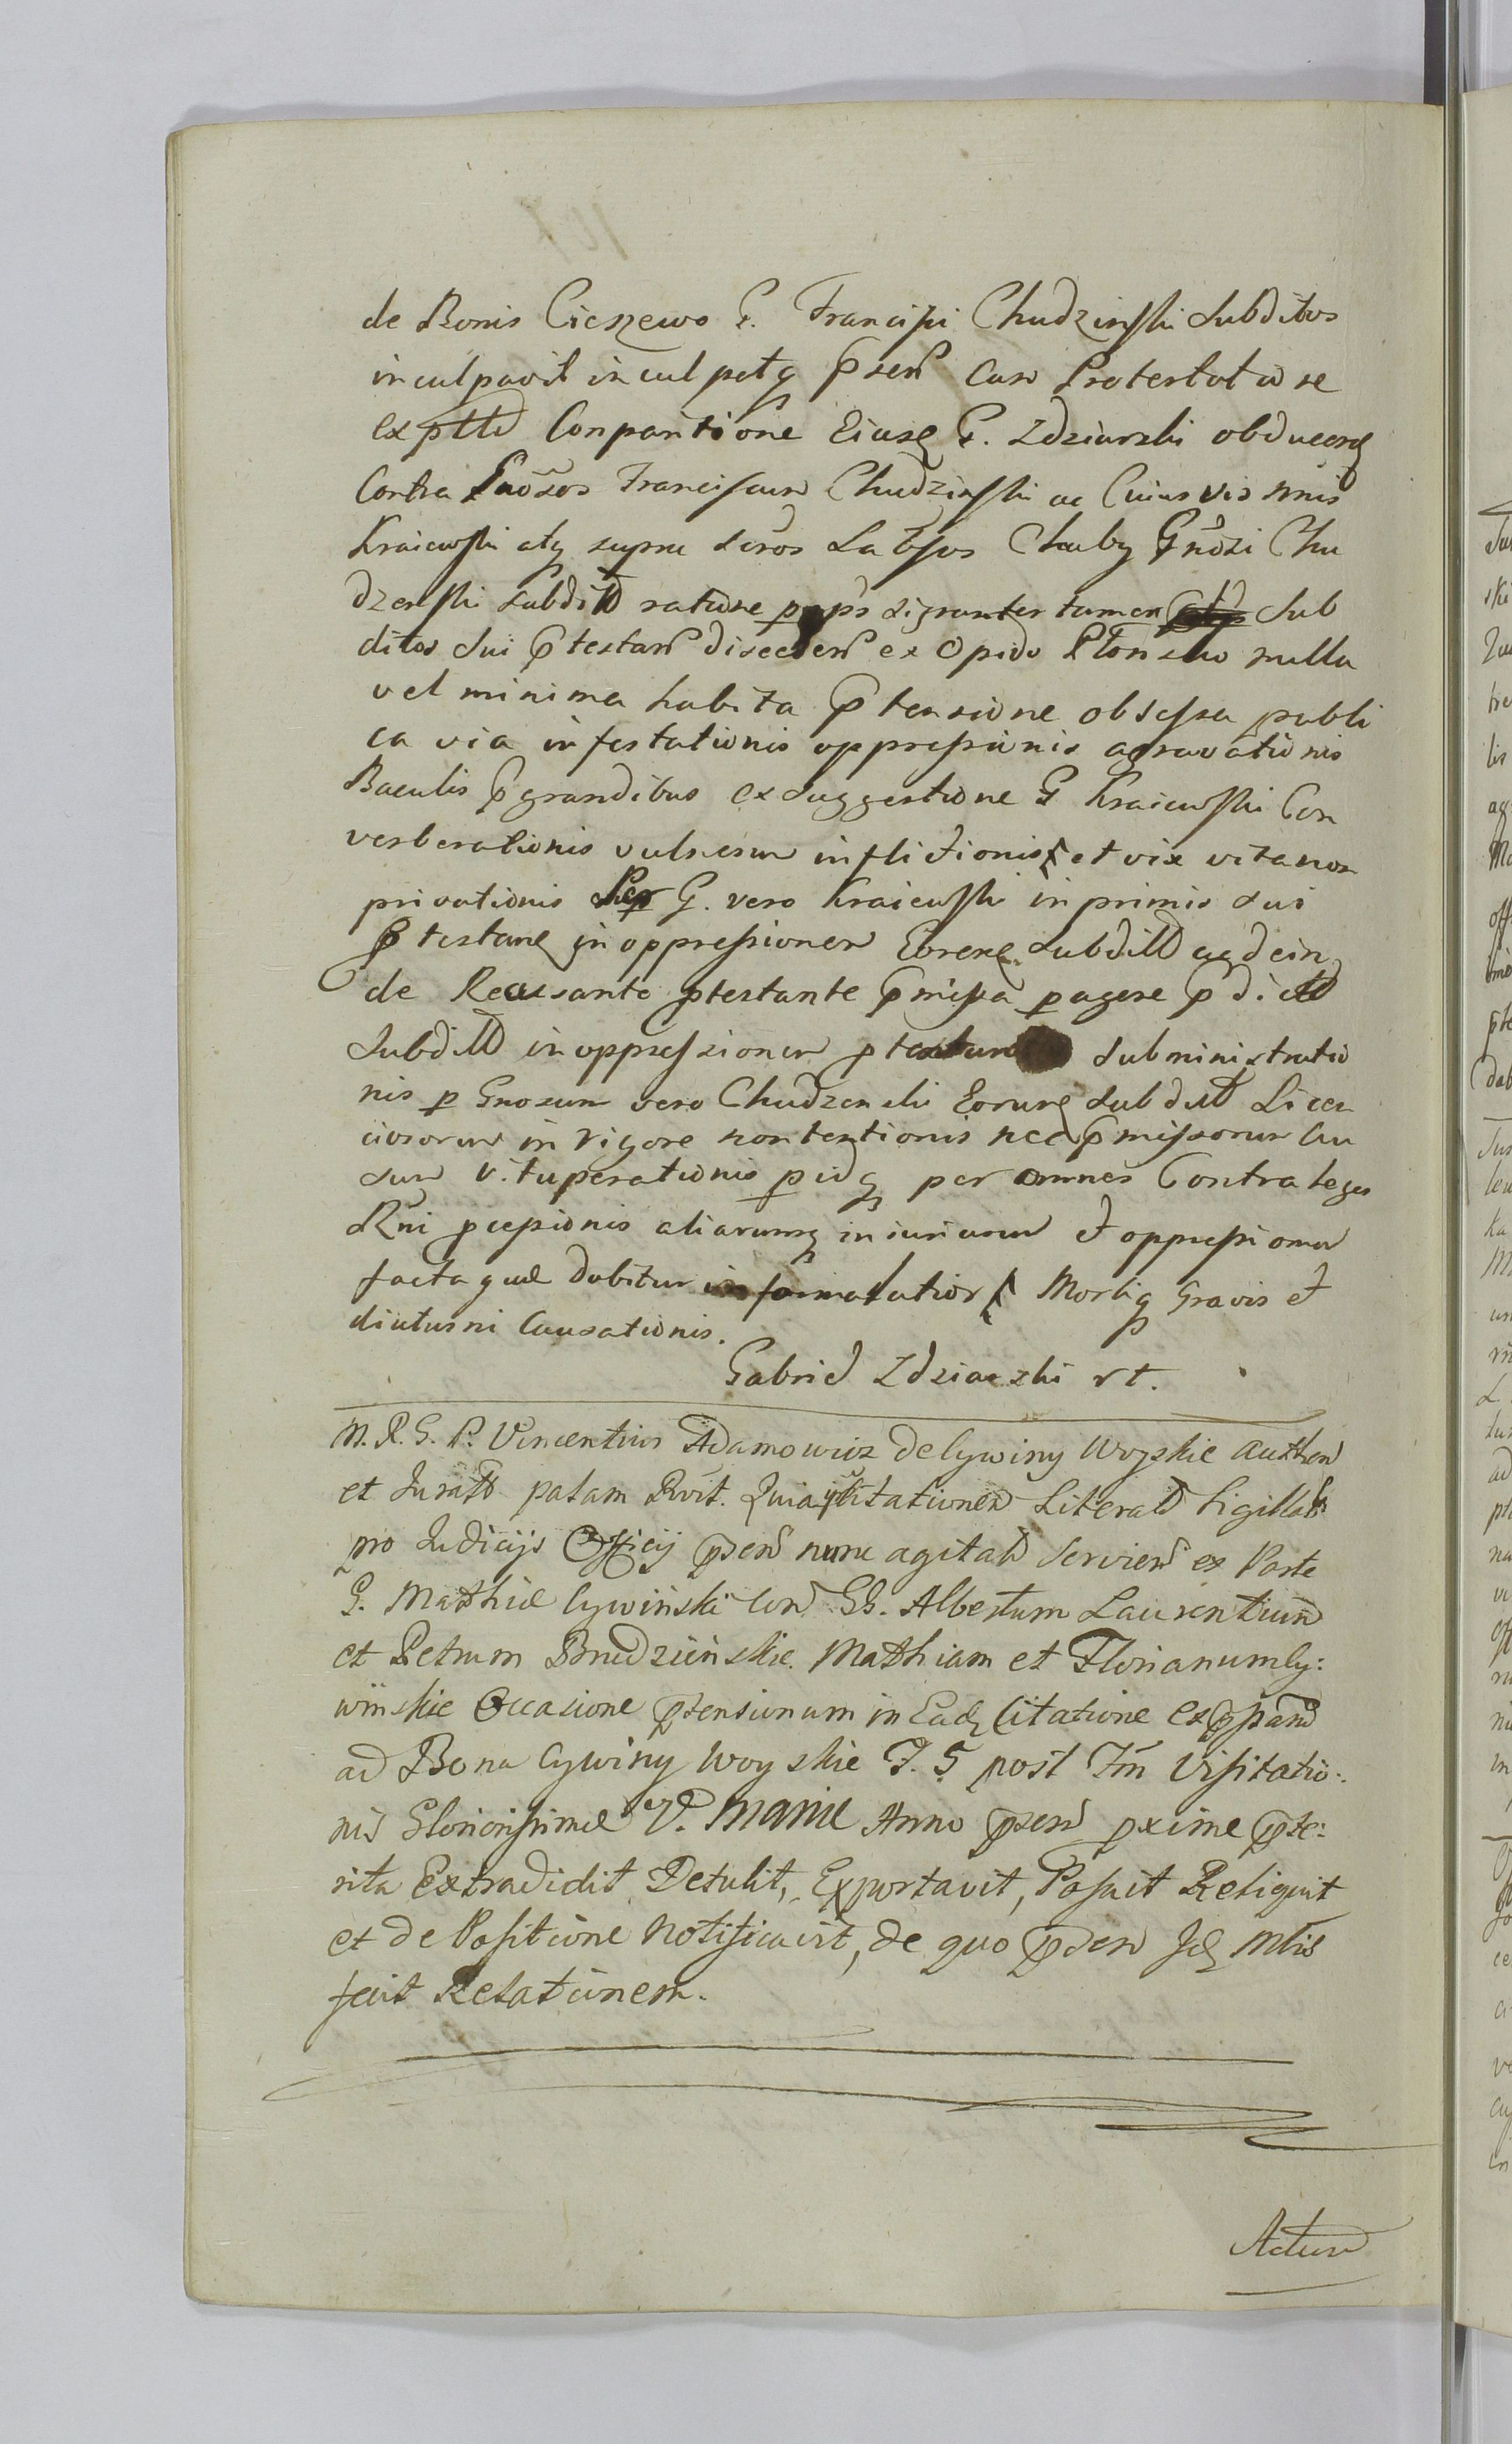 de Bonis Cieszewo G. Francisci Chudzinski Subditos
inculpavit inculpatq psen Cum Protestatione
ex ptto Conparitione Eiusq G. Zdziarski obducend
Contra Gnosos Franciscum Chudzinski ac Cuiusvis nnis
Kraiewski atq supra scros Labsos Chuby Gnosi Chu
dzenski Subditt ratione signanter tamen Sub
ditos Sui ptestan disceden ex Opido Plonsko nulla
vel minima habita ptensione obsessa publi
ca via infestationis oppressionis agravationis
Baculis pgrandibus ex Suggestione G Kraiewski Con
verberationis vulnerum inflictionis et vix vita non
privationis G. vero Kraiewski inprimis sui
ptestane in oppressionem Eorend Subditt ac dein
de Recusante ptestante pmissa pagere pditt
Subditt in oppressionem Subministratio
nis p Gnosum vero Chudzenski Eorund Subditt Licen
ciosorum in rigore nontentionis nec pmissorum Au
sum vituperationis pidq per omnes Contra leges
Rni pcessionis aliarumq iniuriarum et oppressionum
facta quae dabitur informatatior Mortiq Gravis et
diuturni Causationis.
Gabriel Zdziarski rt.
M. R. G. P. Vincentius Adamowicz de Cywiny Woyskie authen
et Jurats palam Rvit. Quia Citationem Literal Sigillat
pro Judicijs Officij psen nunc agitat Servien ex Parte
G. Mathiae Cywinski Con GG. Albertum Laurentium
et Petrum Brudzinskie Mathiam et Florianum Cy:
winskie Occasione ptensionum in Eadq Citatione Expssam
ad Bona Cywiny Woyskie F. 5 post Fm Visitatio:
nis Gloriosissimae V. Mariae Anno psen pxime pte:
rita Extradidit Detulit, Exportavit, Posuit Reliquit
et de Positione Notificavit, de quo psen Jdq Mtis
fecit Relationem.
Actum